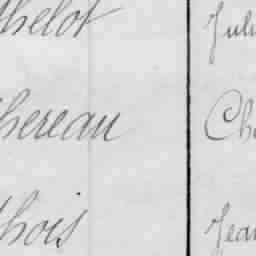 thelot Juli
thereau Cha
thois Jean